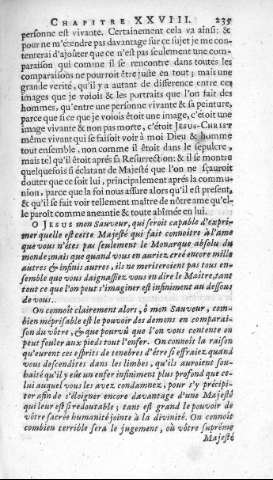 CHAPITRE XXVIII. 239
personne est vivante. Certainement cela va ainsi: &
pour ne m'étendre pas davantage sur ce sujet je me con-
tenterai d'ajoûter que ce n'est pas seulement une com-
paraison qui comme il se rencontre dans toutes les
comparaisons ne pourroit être juste en tout; mais une
grande verité, qu'il y a autant de difference entre ces
images que je voiois & les portraits que l'on fait des
hommes, qu'entre une personne vivante & sa peinture,
parce que si ce que je voiois étoit une image, c'étoit une
image vivante & non pas morte, c'étoit JESUS-CHRIST
même vivant qui se faisoit voir à moi Dieu & homme
tout ensemble, non comme il étoit dans le sepulcre,
mais tel qu'il étoit aprés sa Resurrection: & il se montre
quelquefois si éclatant de Majesté que l'on ne sauroit
douter que ce soit lui, principalement aprés la commu-
nion, parce que la foi nous assure alors qu'il est présent,
& qu'il se fait voir tellement maître de nôtre ame qu'el-
le paroît comme aneantie & toute abîmée en lui.
O JESUS mon Sauveur, qui seroit capable d'expri-
mer quelle est cette Majesté qui fait connoître à l'ame
que vous n'êtes pas seulement le Monarque absolu du
monde; mais que quand vous en auriez créé encore mille
autres & infinis autres, ils ne meriteroient pas tous en-
semble que vous daignassiez vous en dire le Maître, tant
tout ce que l'on peut s'imaginer est infiniment au dessous
de vous.
On connoît clairement alors, ô mon Sauveur, com-
bien méprisable est le pouvoir des demons en comparai-
son du vôtre, & que pourvû que l'on vous contente on
peut fouler aux pieds tout l'enfer. On connoît la raison
qu'eurent ces esprits de tenebres d'être si effraiez quand
vous descendîtes dans les limbes, qu'ils auroient sou-
haité qu'il y eût un enfer infiniment plus profond que ce-
lui auquel vous les avez condamnez, pour s'y précipi-
ter afin de s'éloigner encore davantage d'une Majesté
qui leur est si redoutable; tant est grand le pouvoir de
vôtre sacrée humanité jointe à la divinité. On connoît
combien terrible sera le jugement, où vôtre suprême
Majesté